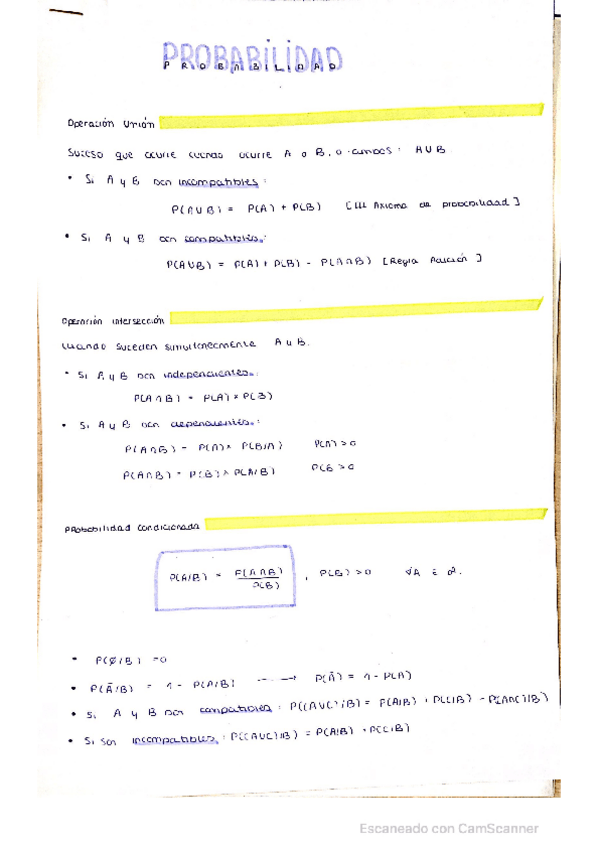 PROBABILIDAD
PROBABILIDAD
Operación Unión
Suceso que ocurre cuando ocurre A o B, o ambos : A∪B.
• Si A y B son incompatibles :
P(A∪B) = P(A) + P(B) [III Axioma de probabilidad]
• Si A y B son compatibles :
P(A∪B) = P(A) + P(B) - P(A∩B) [Regla Adición]
Operación intersección
Cuando suceden simultáneamente A y B.
• Si A y B son independientes :
P(A∩B) = P(A) × P(B)
• Si A y B son dependientes :
P(A∩B) = P(A) × P(B/A) P(A) > 0
P(A∩B) = P(B) × P(A/B) P(B) > 0
Probabilidad condicionada
P(A/B) = P(A∩B) / P(B) , P(B) > 0 ∀A
• P(Ø/B) = 0
• P(Ā/B) = 1 - P(A/B) → P(Ā) = 1 - P(A)
• Si A y B son compatibles : P((A∪C)/B) = P(A/B) + P(C/B) - P((A∩C)/B)
• Si son incompatibles : P((A∪C)/B) = P(A/B) + P(C/B)
Escaneado con CamScanner